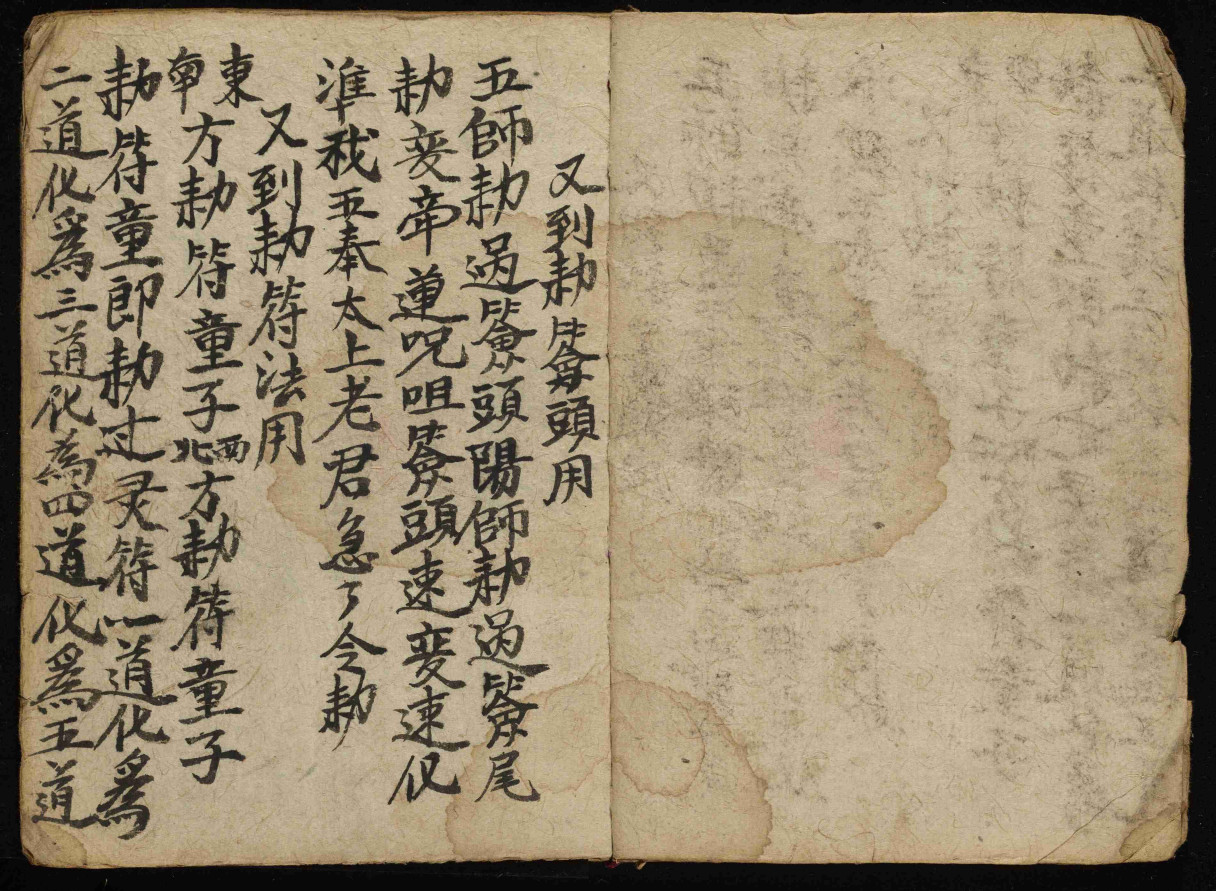 又到勅籨頭用
五師勅過籨頭陽師勅過籨尾
勅変帝蓮呪咀籨頭速変速化
準我五奉太上老君急々令勅
又到勅符法用
東南方勅符童子西北方勅符童子
勅符童即勅过灵符一道化為
二道化為三道化為四道化為五道